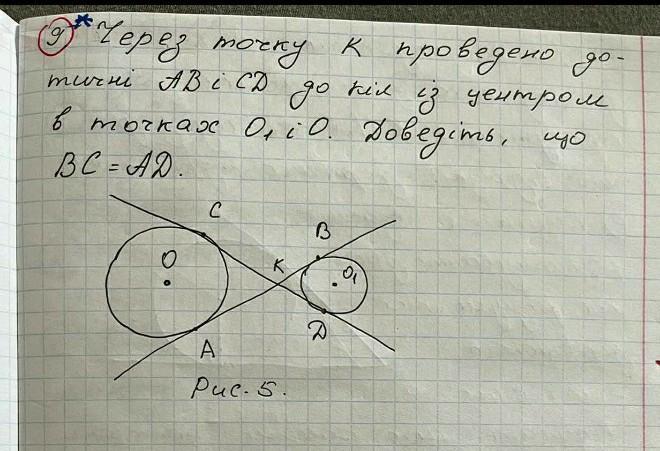 9* Через точку К проведено до-
тичні АВ і CD до кіл із центром
в точках O₁ і O. Доведіть, що
BC = AD.
C
B
O
K
O₁
A
D
Рис. 5.